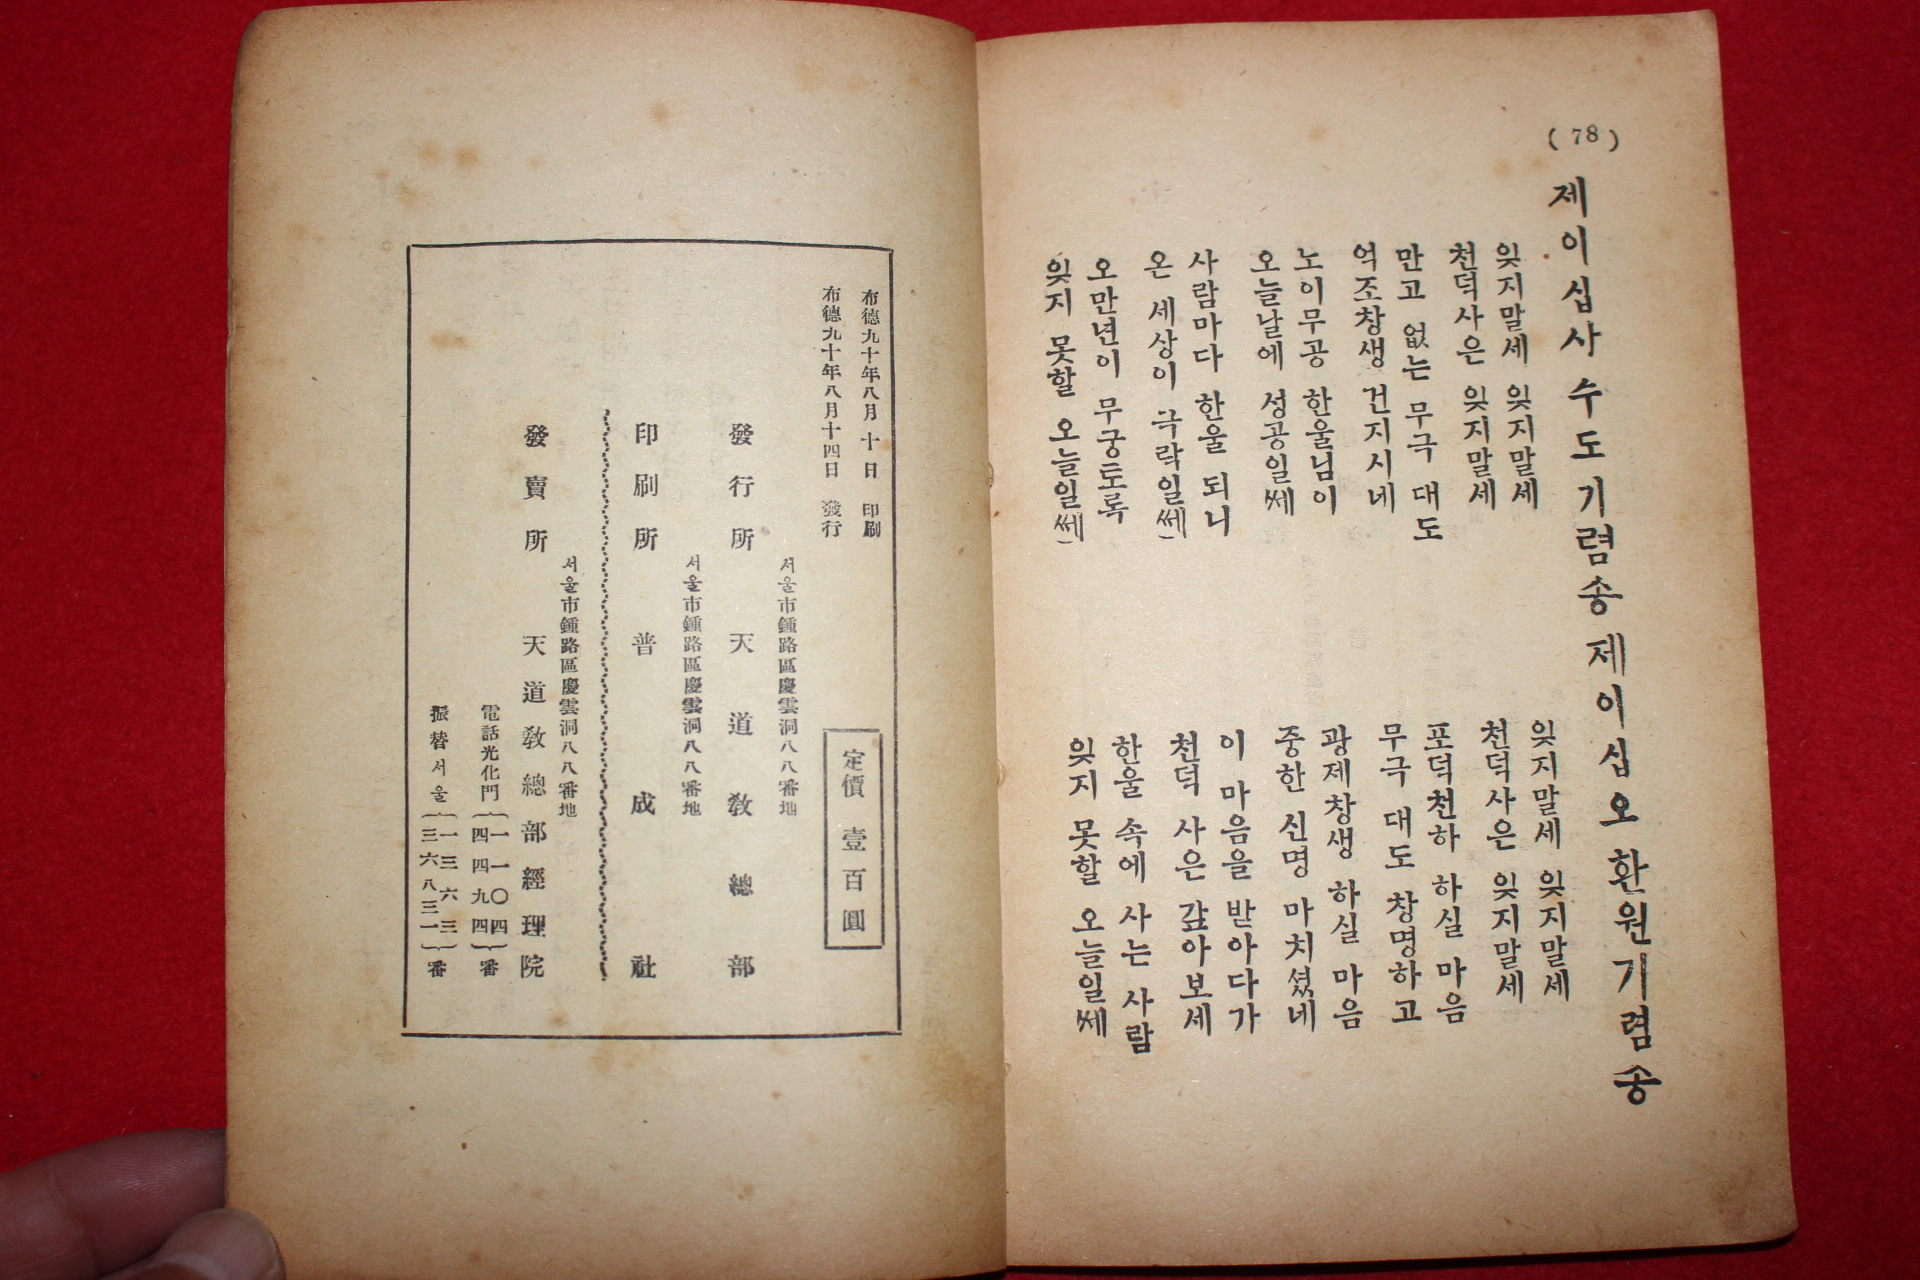 ( 78 )
제이십사 수도기렴송 제이십오 환원기렴송
잊지말세 잊지말세
천덕사은 잊지말세
만고 없는 무극 대도
억조창생 건지시네
노이무공 한울님이
오늘날에 성공일쎄
사람마다 한울 되니
온 세상이 극락일쎄
오만년이 무궁토록
잊지 못할 오늘일쎄
잊지말세 잊지말세
천덕사은 잊지말세
포덕천하 하실 마음
광제창생 하실 마음
무극 대도 창명하고
중한 신명 마치셨네
이 마음을 받아다가
천덕 사은 갚아보세
한울 속에 사는 사람
잊지 못할 오늘일쎄
布德九十年八月 十 日 印刷
布德九十年八月十四日 發行
定價 壹百圓
서울市鍾路區慶雲洞八八番地
發行所 天道敎總部
서울市鍾路區慶雲洞八八番地
印刷所 普成社
서울市鍾路區慶雲洞八八番地
發賣所 天道敎總部經理院
電話光化門(一一〇四 四四九四)番
振替서울(一三六三 三六八三一)番